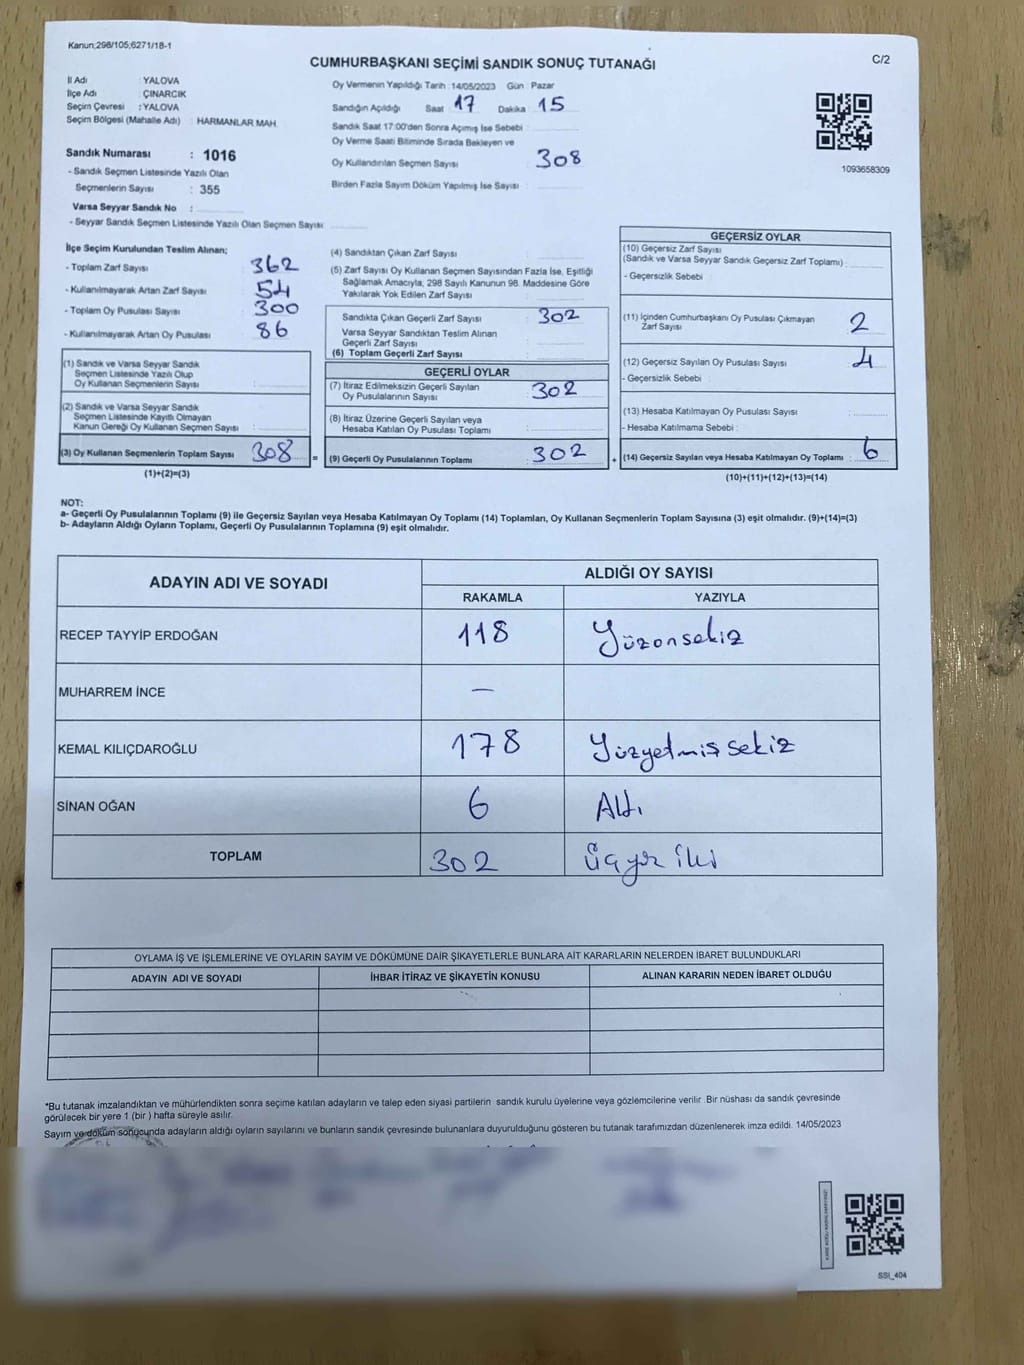 Kanun;298/105;6271/18-1
C/2
CUMHURBAŞKANI SEÇİMİ SANDIK SONUÇ TUTANAĞI
İl Adı : YALOVA
İlçe Adı : ÇINARCIK
Seçim Çevresi : YALOVA
Seçim Bölgesi (Mahalle Adı) : HARMANLAR MAH.
Sandık Numarası : 1016
- Sandık Seçmen Listesinde Yazılı Olan
Seçmenlerin Sayısı : 355
Varsa Seyyar Sandık No :
- Seyyar Sandık Seçmen Listesinde Yazılı Olan Seçmen Sayısı:
Oy Vermenin Yapıldığı Tarih : 14/05/2023 Gün : Pazar
Sandığın Açıldığı Saat : 17 Dakika : 15
Sandık Saat 17:00'den Sonra Açılmış İse Sebebi :
Oy Verme Saati Bitiminde Sırada Bekleyen ve
Oy Kullandırılan Seçmen Sayısı : 308
Birden Fazla Sayım Döküm Yapılmış İse Sayısı :
1093658309
İlçe Seçim Kurulundan Teslim Alınan;
- Toplam Zarf Sayısı : 362
- Kullanılmayarak Artan Zarf Sayısı : 54
- Toplam Oy Pusulası Sayısı : 300
- Kullanılmayarak Artan Oy Pusulası : 86
(1) Sandık ve Varsa Seyyar Sandık
Seçmen Listesinde Yazılı Olup
Oy Kullanan Seçmenlerin Sayısı :
(2) Sandık ve Varsa Seyyar Sandık
Seçmen Listesinde Kayıtlı Olmayan
Kanun Gereği Oy Kullanan Seçmen Sayısı :
(3) Oy Kullanan Seçmenlerin Toplam Sayısı : 308 =
(1)+(2)=(3)
(4) Sandıktan Çıkan Zarf Sayısı :
(5) Zarf Sayısı Oy Kullanan Seçmen Sayısından Fazla İse, Eşitliği
Sağlamak Amacıyla, 298 Sayılı Kanunun 98. Maddesine Göre
Yakılarak Yok Edilen Zarf Sayısı :
Sandıkta Çıkan Geçerli Zarf Sayısı : 302
Varsa Seyyar Sandıktan Teslim Alınan
Geçerli Zarf Sayısı :
(6) Toplam Geçerli Zarf Sayısı :
GEÇERLİ OYLAR
(7) İtiraz Edilmeksizin Geçerli Sayılan
Oy Pusulalarının Sayısı : 302
(8) İtiraz Üzerine Geçerli Sayılan veya
Hesaba Katılan Oy Pusulası Toplamı :
(9) Geçerli Oy Pusulalarının Toplamı : 302 +
GEÇERSİZ OYLAR
(10) Geçersiz Zarf Sayısı
(Sandık ve Varsa Seyyar Sandık Geçersiz Zarf Toplamı) :
- Geçersizlik Sebebi :
(11) İçinden Cumhurbaşkanı Oy Pusulası Çıkmayan
Zarf Sayısı : 2
(12) Geçersiz Sayılan Oy Pusulası Sayısı : 4
- Geçersizlik Sebebi :
(13) Hesaba Katılmayan Oy Pusulası Sayısı :
- Hesaba Katılmama Sebebi :
(14) Geçersiz Sayılan veya Hesaba Katılmayan Oy Toplamı : 6
(10)+(11)+(12)+(13)=(14)
NOT:
a- Geçerli Oy Pusulalarının Toplamı (9) ile Geçersiz Sayılan veya Hesaba Katılmayan Oy Toplamı (14) Toplamları, Oy Kullanan Seçmenlerin Toplam Sayısına (3) eşit olmalıdır. (9)+(14)=(3)
b- Adayların Aldığı Oyların Toplamı, Geçerli Oy Pusulalarının Toplamına (9) eşit olmalıdır.
ADAYIN ADI VE SOYADI
ALDIĞI OY SAYISI
RAKAMLA YAZIYLA
RECEP TAYYİP ERDOĞAN 118 Yüzonsekiz
MUHARREM İNCE —
KEMAL KILIÇDAROĞLU 178 Yüzyetmiş sekiz
SİNAN OĞAN 6 Altı
TOPLAM 302 Üçyüz iki
OYLAMA İŞ VE İŞLEMLERİNE VE OYLARIN SAYIM VE DÖKÜMÜNE DAİR ŞİKAYETLERLE BUNLARA AİT KARARLARIN NELERDEN İBARET BULUNDUKLARI
ADAYIN ADI VE SOYADI İHBAR İTİRAZ VE ŞİKAYETİN KONUSU ALINAN KARARIN NEDEN İBARET OLDUĞU
*Bu tutanak imzalandıktan ve mühürlendikten sonra seçime katılan adayların ve talep eden siyasi partilerin sandık kurulu üyelerine veya gözlemcilerine verilir. Bir nüshası da sandık çevresinde
görülecek bir yere 1 (bir ) hafta süreyle asılır.
Sayım ve döküm sonucunda adayların aldığı oyların sayılarını ve bunların sandık çevresinde bulunanlara duyurulduğunu gösteren bu tutanak tarafımızdan düzenlenerek imza edildi. 14/05/2023
SSI_404